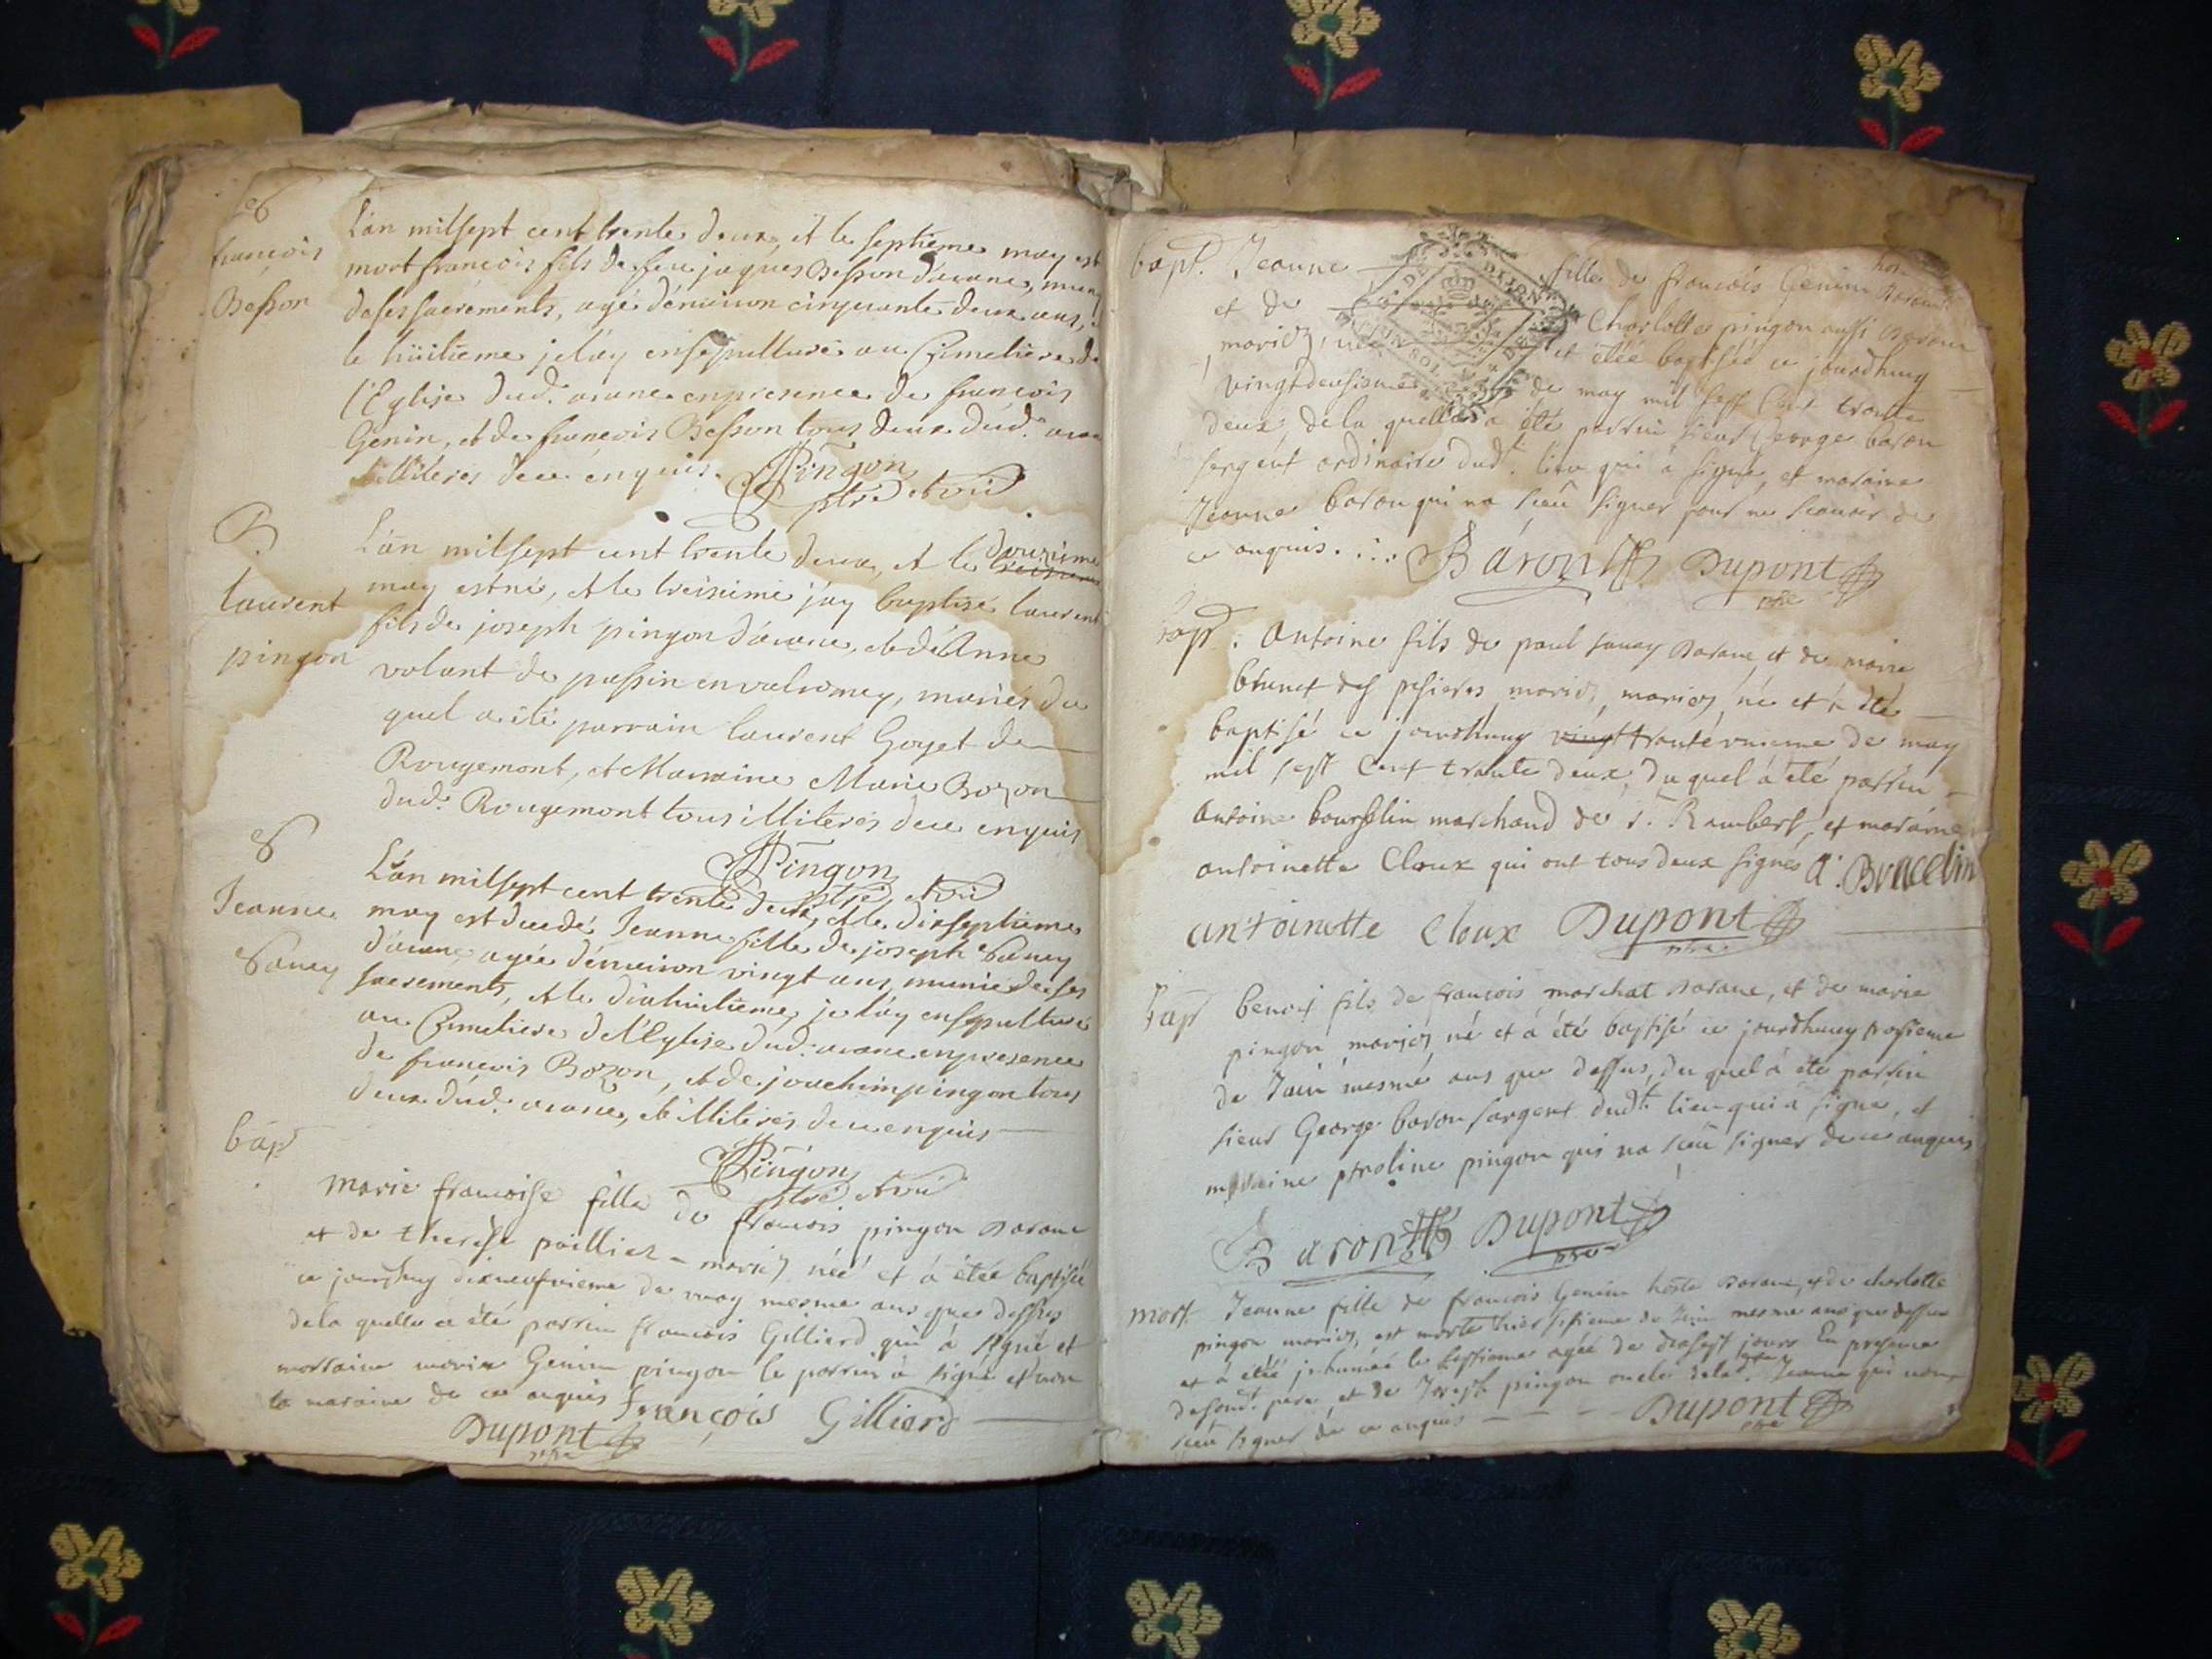 S
françois
Besson
L'an milsept cent trente deux, et le septieme may est
mort françois fils de feu jaques Besson d'arane, muny
de ses sacrements, agé d'énuiron cinquante deux ans,
le huitieme je l'ay ensepulturé au Cimetiere de
l'Eglise dud. arane en presence de françois
Genin, et de francois Besson tous deux dud. arane
illiteres de ce enquis. Pingon
ptre et vic
B
laurent
pingon
L'an milsept cent trente deux, et le douzieme
may est né, et le treisieme j'ay baptisé laurent
fils de joseph pingon d'arane, et de Anne
volant de passin en valromey, mariés du
quel a été parrain laurent Goyet de
Rougemont, et Marraine Marie Bozon
dud. Rougemont tous illiterés de ce enquis
Pingon
ptre et vic
S
Jeanne
Sauey
L'an milsept cent trente deux, et le dixseptieme
may est decedé Jeanne fille de joseph Sauey
d'arane, agée d'énuiron vingt ans, munie de ses
sacrements, et le dixhuitieme, je l'ay ensepulturé
au Cimetiere de l'Eglise dud. arane en presence
de francois Bozon, et de joachim pingon tous
deux dud. arane, et illiterés de ce enquis
Pingon
ptre et vic
bap
marie francoise fille de francois pingon Darane
et de therese paillier mariez née et à étée baptisée
ce jourdhuy dixneufvieme de may mesme ans que dessus
de la quelle a été parrin francois Gilliard qui à signé et
marraine marie Genin pingon le parrin à signé et non
la maraine de ce enquis françois Gilliard
Dupont
ptre
bapt. Jeanne fille de francois Genin Darane
et de Charlotte pingon aussi Darane
mariez, née et étée baptisée ce jourdhuy
vingtdeusieme de may mil sept Cent trante
deux, de la quelle a été parrin sieur George baron
sergent ordinaire dudt. lieu qui à signé, et maraine
Jeanne baron qui na sceu signer pour ne scavoir de
ce anquis. Baron Dupont
ptre
bapt. Antoine fils de paul sauey Darane, et de marie
brunet des mariez, mariez né et à été
baptisé ce jourdhuy vingt trantevnieme de may
mil sept Cent trante deux, du quel à été parrin
antoine bourselin marchand de St. Rambert, et maraine
antoinette Cloux qui ont tous deux signés A. Bracelin
antoinette Cloux Dupont
ptre
bap benoit fils de francois marchat Darane, et de marie
pingon mariez né et à été baptisé ce jourdhuy
de Juin mesme ans que dessus, du quel à été parrin
sieur George baron sargent dudt. lieu qui à signé, et
maraine pingon qui na sceu signer de ce anquis
Baron Dupont
ptre
mort. Jeanne fille de francois Genin hoste Darane, et de charlotte
pingon mariez, est morte hier sisieme de Juin mesme ans que dessus
et à étée jnhumée le septieme agée de diosept jours En presence
de sondt. pere et de Joseph pingon oncle de lad. Jeanne qui nont
sceu signer de ce anquis Dupont
ptre